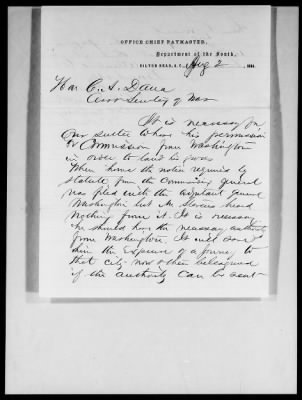 OFFICE CHIEF PAYMASTER,
Department of the South,
HILTON HEAD, S. C., Aug 2, 186
Hon C. A. Dana
Asst Secretary of War
It is necessary for
our sutler to have his permission
or Commission from Washington
in order to land his goods
When home the notice required by
statute from the Commanding general
was filed with the adjutant general
Washington but Mr Stevens heard
nothing from it. It is necessary
he should have the necessary authority
from Washington. It will save
him the expense of a journey to
that city now when beleagured
if the authority can be sent